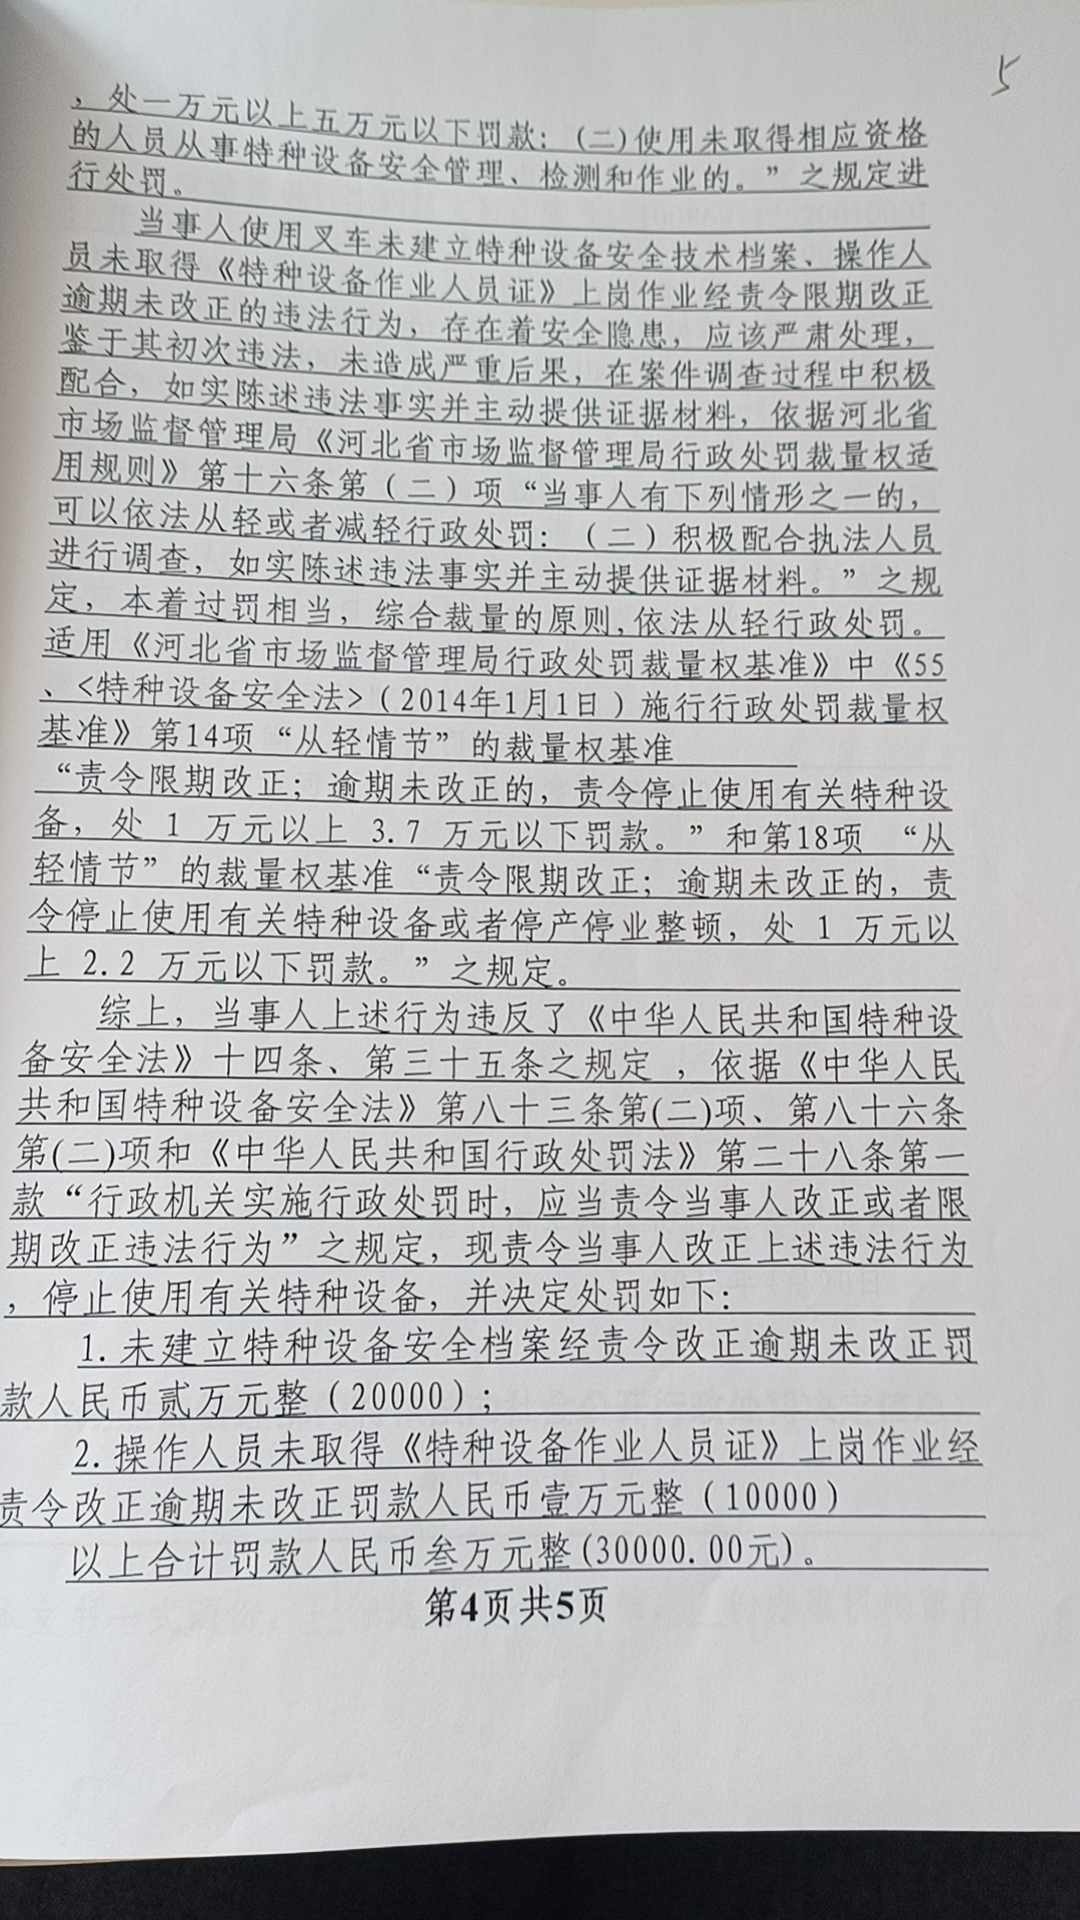 5
，处一万元以上五万元以下罚款：(二)使用未取得相应资格
的人员从事特种设备安全管理、检测和作业的。”之规定进
行处罚。
当事人使用叉车未建立特种设备安全技术档案、操作人
员未取得《特种设备作业人员证》上岗作业经责令限期改正
逾期未改正的违法行为，存在着安全隐患，应该严肃处理，
鉴于其初次违法，未造成严重后果，在案件调查过程中积极
配合，如实陈述违法事实并主动提供证据材料，依据河北省
市场监督管理局《河北省市场监督管理局行政处罚裁量权适
用规则》第十六条第（二）项“当事人有下列情形之一的，
可以依法从轻或者减轻行政处罚：（二）积极配合执法人员
进行调查，如实陈述违法事实并主动提供证据材料。”之规
定，本着过罚相当，综合裁量的原则,依法从轻行政处罚。
适用《河北省市场监督管理局行政处罚裁量权基准》中《55
、<特种设备安全法>（2014年1月1日）施行行政处罚裁量权
基准》第14项“从轻情节”的裁量权基准
“责令限期改正；逾期未改正的，责令停止使用有关特种设
备，处 1 万元以上 3.7 万元以下罚款。”和第18项 “从
轻情节”的裁量权基准“责令限期改正；逾期未改正的，责
令停止使用有关特种设备或者停产停业整顿，处 1 万元以
上 2.2 万元以下罚款。”之规定。
综上，当事人上述行为违反了《中华人民共和国特种设
备安全法》十四条、第三十五条之规定 ，依据《中华人民
共和国特种设备安全法》第八十三条第(二)项、第八十六条
第(二)项和《中华人民共和国行政处罚法》第二十八条第一
款“行政机关实施行政处罚时，应当责令当事人改正或者限
期改正违法行为”之规定，现责令当事人改正上述违法行为
，停止使用有关特种设备，并决定处罚如下：
1.未建立特种设备安全档案经责令改正逾期未改正罚
款人民币贰万元整（20000）；
2.操作人员未取得《特种设备作业人员证》上岗作业经
责令改正逾期未改正罚款人民币壹万元整（10000）
以上合计罚款人民币叁万元整(30000.00元)。
第4页共5页